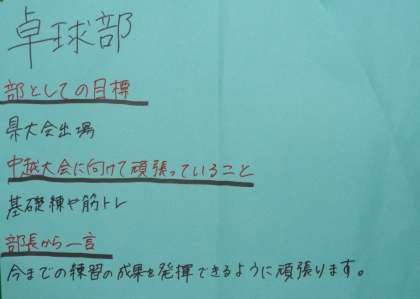 卓球部
部としての目標
県大会出場
中越大会に向けて頑張っていること
基礎練や筋トレ
部長から一言
今までの練習の成果を発揮できるように頑張ります。